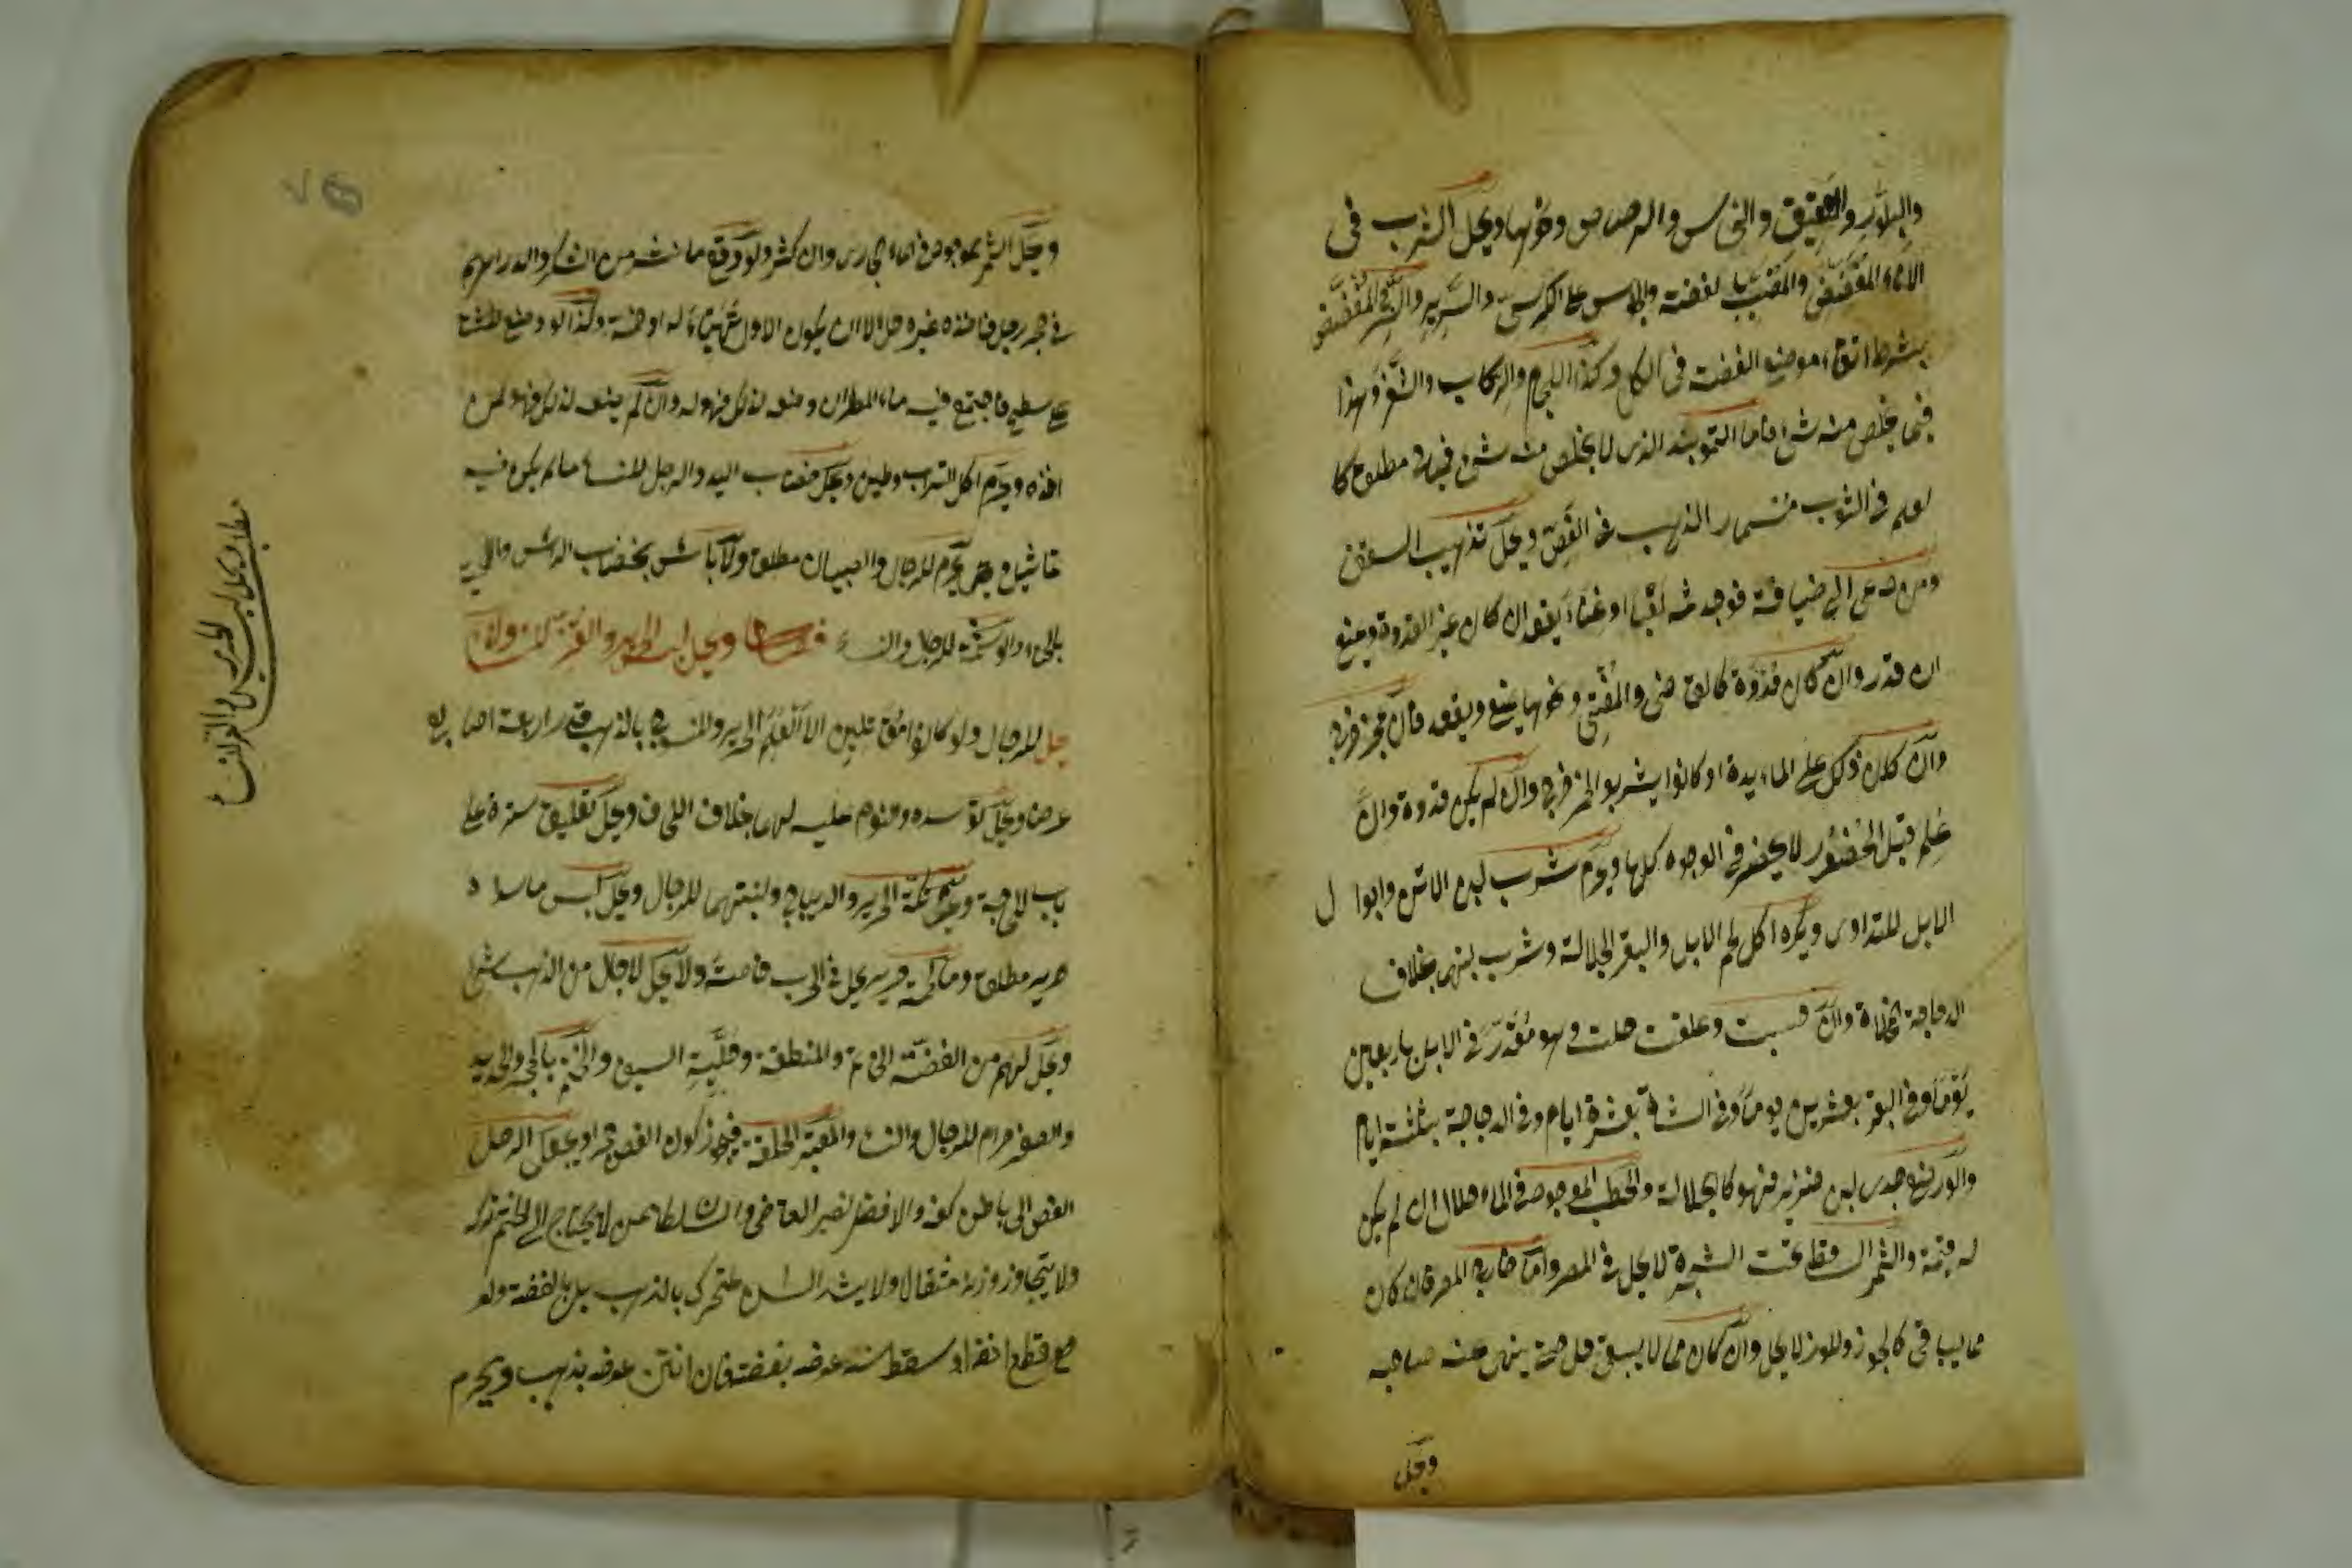 والبلور والعقيق والنحاس والرصاص ونحوها ويحل الشرب فى
الاناء المفضض والمضبب بالفضة والجلوس على الكرسى والسرير والسرج المفضض
بشرط اتقاء موضع الفضة فى الكل وكذا اللجام والركاب والثفر وهذا
فيما يخلص منه شىء فاما التمويه الذى لا يخلص منه شىء فمباح مطلقا كا
لعلم فى الثوب ومسمار الذهب فى الفص ويحل تذهيب السقف
ومن دعى الى ضيافة فوجد ثمه لعبا او غناء يقعد ان كان غير القدوة ويمنع
ان قدر وان كان قدوة كالقاضى والمفتى ونحوهما يمنع ويقعد فان عجز خرج
وان كان ذلك على المائدة او كانوا يشربوا الخمر خرج وان لم يكن قدوة وان
علم قبل الحضور لا يحضر فى الوجوه كلها ويحرم شرب لبن الاتن وابوال
الابل للتداوى ويكره اكل لحم الابل والبقر الجلالة وشرب لبنهما بخلاف
الدجاجة المخلاة وان حبست وعلفت حلت وهو مقدر فى الابل باربعين
يوما وفى البقر بعشرين يوما وفى الشاة بعشرة ايام وفى الدجاجة بثلثة ايام
ولو رضع جدى لبن خنزير فهو كالجلالة والحطب الموجود فى الماء حلال ان لم يكن
له قيمة والثمر الساقط تحت الشجرة لا يحل فى المصر واما خارج المصر فان كان
مما يبقى كالجوز واللوز لا يحل وان كان مما لا يبقى حل حتى ينهى عنه صاحبه
ويحل
ويحل الثمر الموجود فى الماء الجارى وان كثر ولو وقع ما نثر من السكر والدراهم
فى حجر رجل فاخذه غيره حل الا ان يكون الاول تهيأ له او ضمه وكذا لو وضع طشتا
على سطح فاجتمع فيه ماء المطر ان وضعه لذلك فهو له وان لم يضعه لذلك فهو لمن
اخذه ويحرم اكل التراب وطين ويحل خضاب اليد والرجل للنساء ما لم يكن فيه
تماثيل ويحرم للرجال والصبيان مطلقا ولا باس بخضاب الراس واللحية
بالحناء والوسمة للرجال والنساء فصل ويحل لبس الحرير والقز للنساء ولا
يحل للرجال ولو كانوا مقاتلين الا العلم الحرير والمنسوج بالذهب قدر اربعة اصابع
عرضا ويحل توسده ونوم عليه لهما بخلاف اللحاف ويحل تعليق ستره على
باب للحاجة ويحرم تكة الحرير والديباج ولبنتهما للرجال ويحل لبس ما سداه
حرير مطلقا وما لحمته حرير يحل فى الحرب خاصة ولا يحل للرجال من الذهب شىء
ويحل لهم من الفضة الخاتم والمنطقة وحلية السيف والتختم بالحجر والحديد
والصفر حرام للرجال والنساء والمعتبر الحلقة فيجوز كون الفص حجرا ويجعل الرجل
الفص الى باطن كفه والافضل لغير القاضى والسلطان ممن لا يحتاج الى الختم تركه
ولا يتجاوز وزنه مثقال ولا يشد السن متحرك بالذهب بل بالفضة ولو
قطع انفه او سقط سنه عوضه بفضة فان انتن عوضه بذهب ويحرم
مطلب ويحل لبس الحرير والقز للنساء